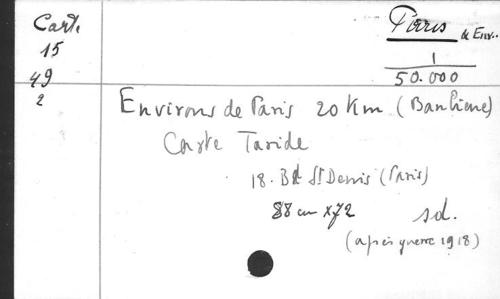 Carte
15
49
2
Paris & Env..
1
50.000
Environs de Paris 20 Km (Banlieue)
Carte Taride
18. Bd St Denis (Paris)
88 cm x 72
sd.
(après guerre 1918)